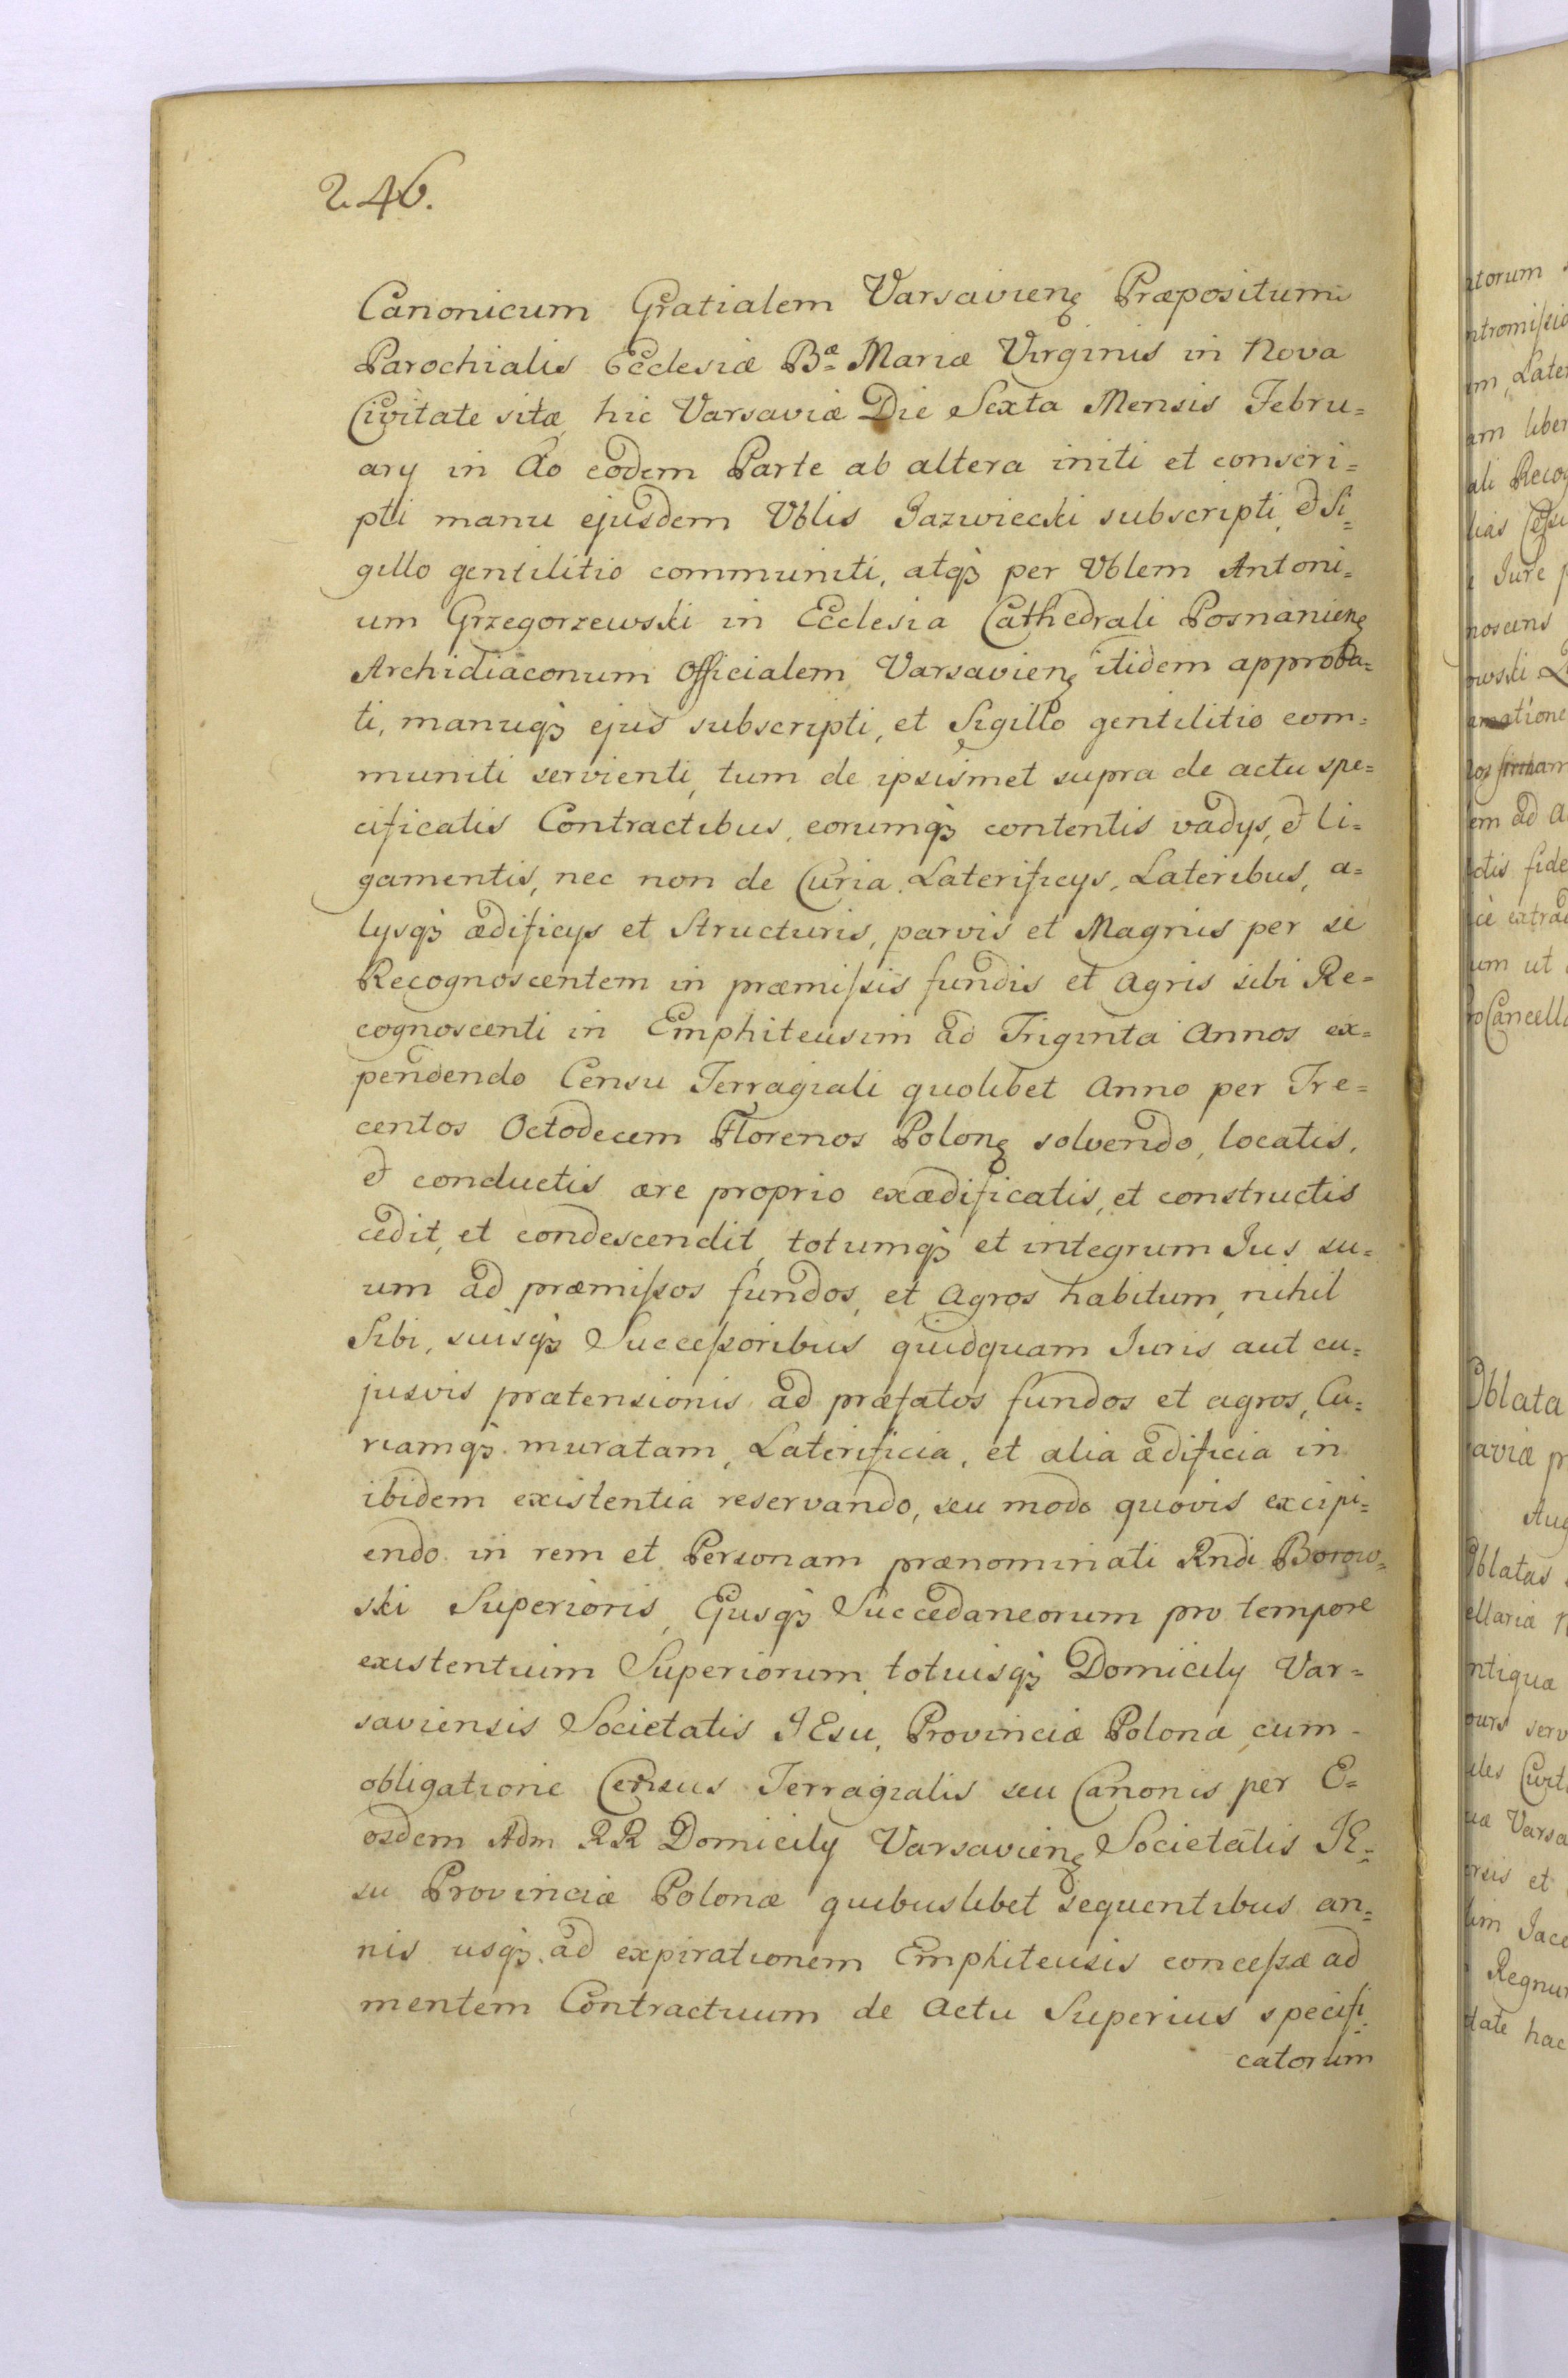 246.
Canonicum Gratialem Varsavienȩ Præpositum
Parochialis Ecclesiæ Bæ Mariæ Virginis in Nova
Civitate sitæ, hic Varsaviæ Die Sexta Mensis Febru=
ary in Ao eodem Parte ab altera initi et conscri=
pti manu ejusdem Vblis Jazwiecki subscripti, & Si=
gillo gentilitio communiti, atqȝ per Vblem Antoni=
um Grzegorzewski in Ecclesia Cathedrali Posnanienȩ
Archidiaconum Officialem Varsavienȩ itidem approba=
ti, manuqȝ ejus subscripti, et Sigillo gentilitio com=
muniti servienti, tum de ipsismet supra de actu spe=
cificatis Contractibus, eorumqȝ contentis vadys, & li=
gamentis, nec non de Curia, Laterificys, Lateribus, a=
lysqȝ ædificys et Structuris, parvis et Magnis per se
Recognoscentem in præmissis fundis et Agris sibi Re=
cognoscenti in Emphiteusim ad Triginta Annos ex=
pendendo Censu Terragiali quolibet Anno per Tre=
centos Octodecem Florenos Polonȩ solvendo, locatis,
& conductis ære proprio exædificatis, et constructis
cedit, et condescendit, totumqȝ et integrum Jus su=
um ad præmissos fundos, et Agros habitum, nihil
Sibi, suisqȝ Successoribus quidquam Juris aut cu=
jusvis prætensionis ad præfatos fundos et agros, Cu=
riamqȝ muratam, Laterificia, et alia ædificia in
ibidem existentia reservando, seu modo quovis excipi=
endo in rem et Personam prænominati Rndi Borow=
ski Superioris, Ejusqȝ Succedaneorum pro tempore
existentium Superiorum, totiusqȝ Domicily Var=
saviensis Societatis JEsu, Provinciæ Polonæ, cum
obligatione Census Terragialis seu Canonis per E=
osdem Adm RR Domicily Varsavienȩ Societatis JE=
su Provinciæ Polonæ quibuslibet sequentibus an=
nis usqȝ ad expirationem Emphiteusis concessæ ad
mentem Contractuum de Actu Superius specifi=
catorum